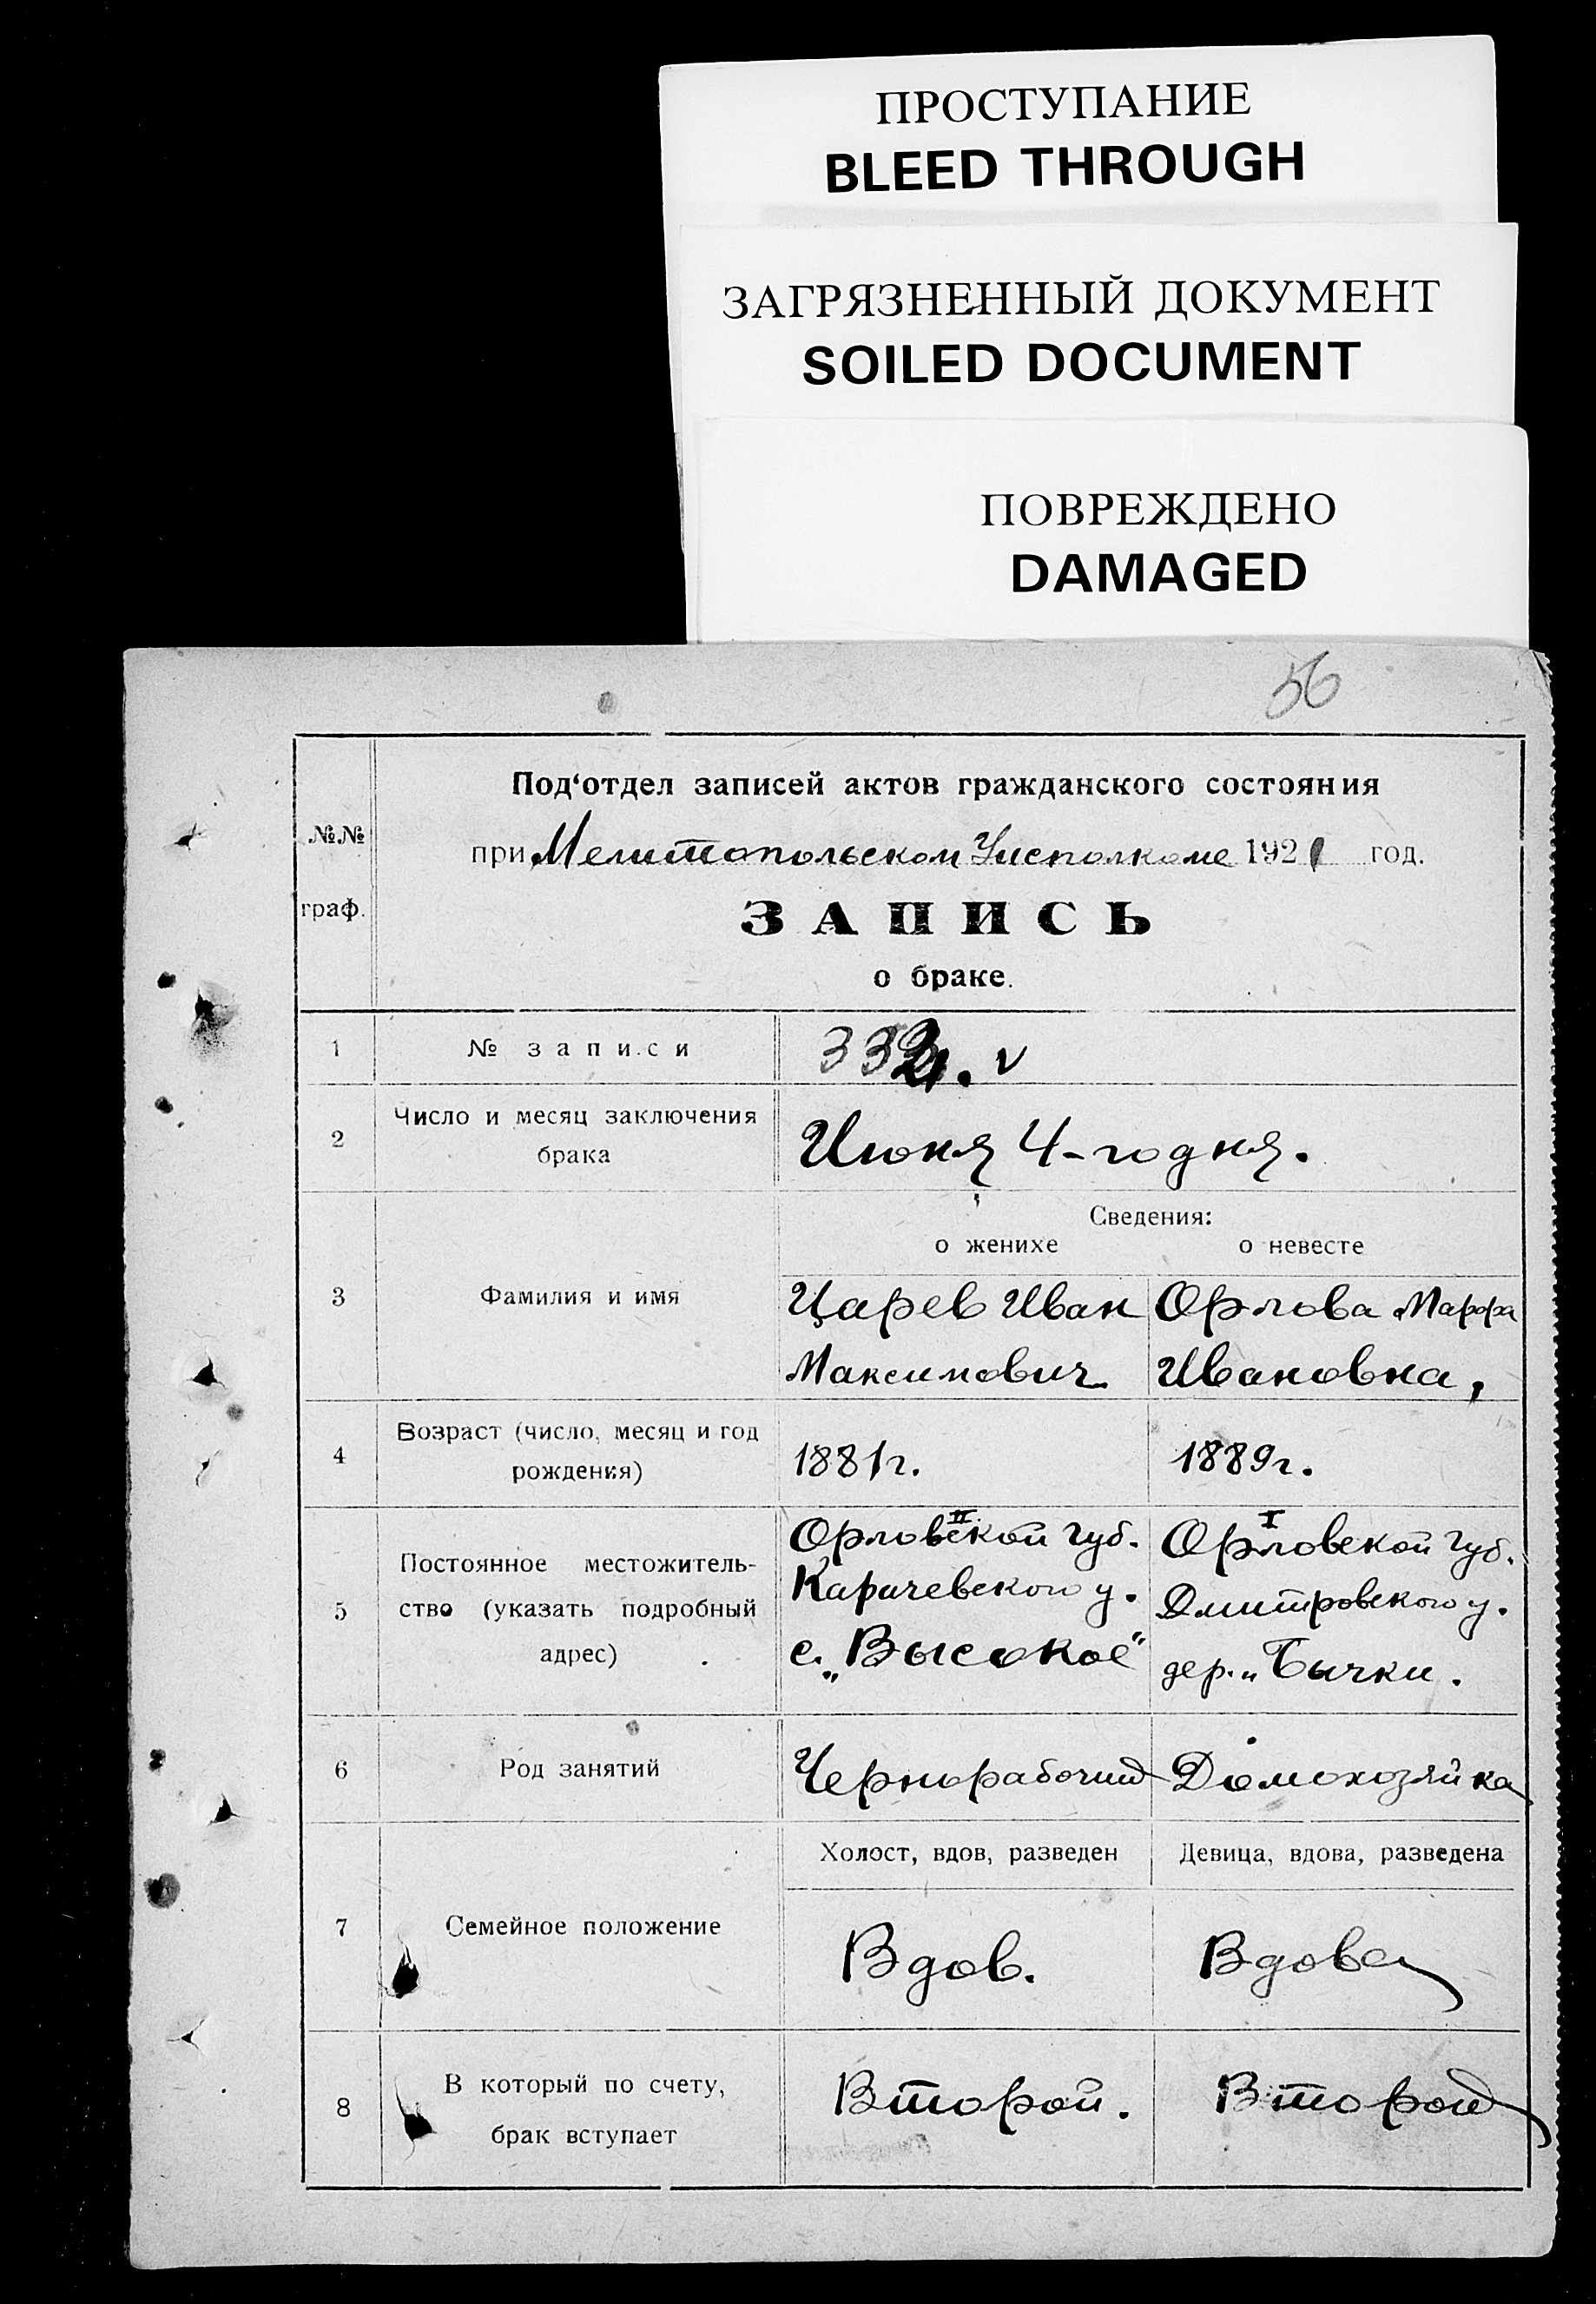 ПРОСТУПАНИЕ
BLEED THROUGH
ЗАГРЯЗНЕННЫЙ ДОКУМЕНТ
SOILED DOCUMENT
ПОВРЕЖДЕНО
DAMAGED
56
№№
граф.
Под‘отдел записей актов гражданского состояния
при Мелитопольском Уисполкоме 1921 год.
ЗАПИСЬ
о браке.
1 № записи 332. v
2 Число и месяц заключения
брака
Июня 4-го дня.
Сведения:
о женихе о невесте
3 Фамилия и имя
Царев Иван
Максимович
Орлова Марфа
Ивановна,
4 Возраст (число, месяц и год
рождения)
1881г.
1889г.
5 Постоянное местожитель-
ство (указать подробный
адрес)
II
Орловской губ.
Карачевского у.
с. „Высокое“
I
Орловской губ.
Дмитровского у.
дер. „Бычки.
6 Род занятий
Чернорабочий
Домохозяйка
7 Семейное положение
Холост, вдов, разведен
Девица, вдова, разведена
Вдов.
Вдова
8 В который по счету,
брак вступает
Второй.
Второй